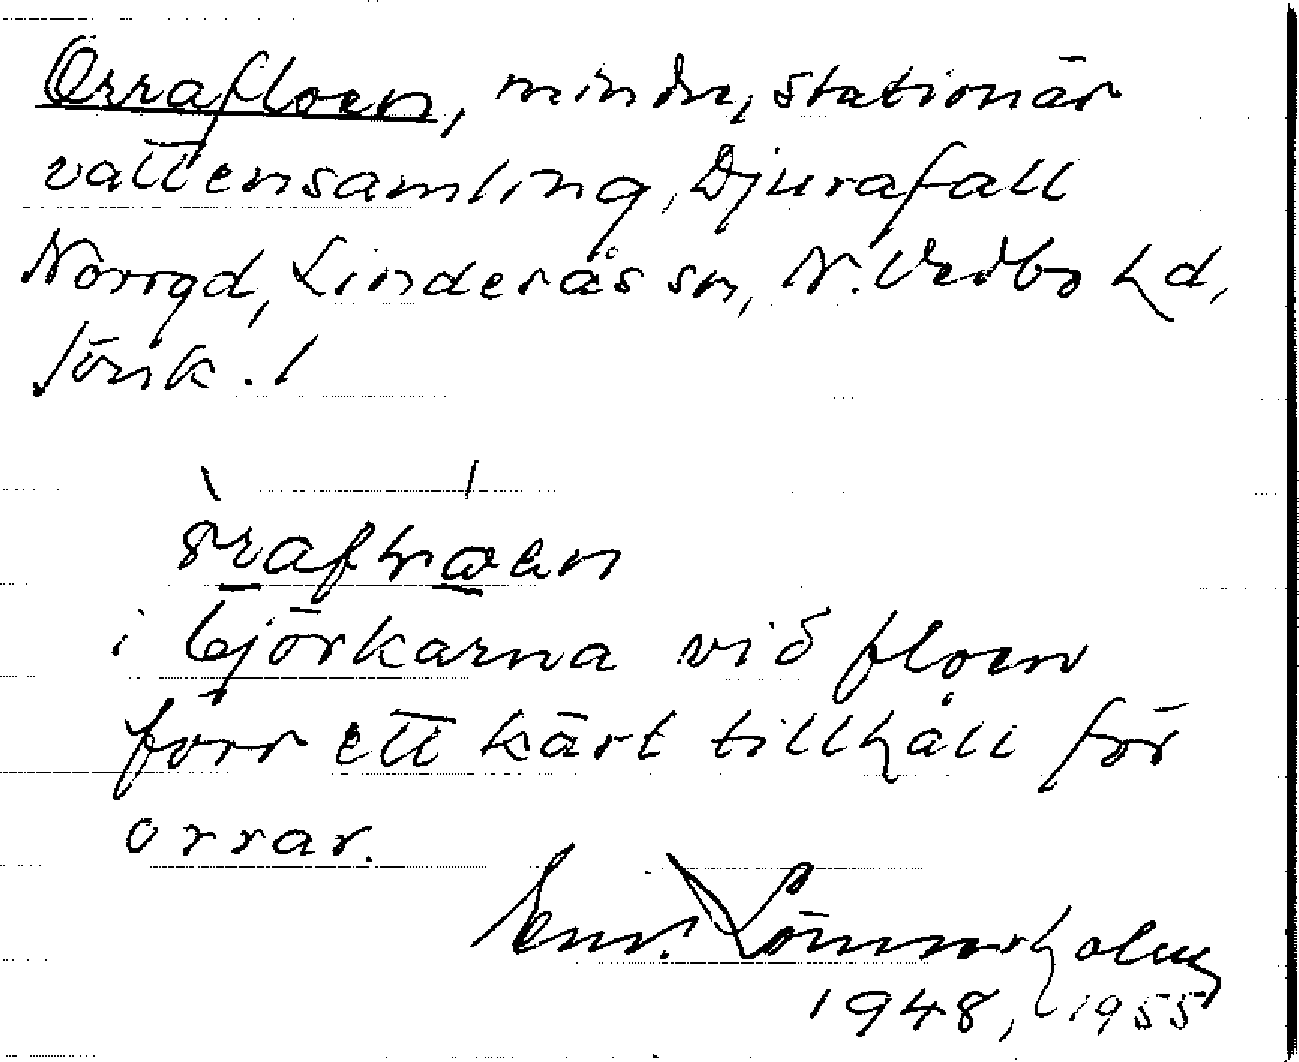 Orrafloen, mindre, stationär
vattensamling, Djurafall
Norrgd, Linderås sn, N. Vedbo hd,
Jönk. l
i björkarna vid floen
förr ett kärt tillhåll för
orrar.
Einar Lönnerholm
1948, 1955